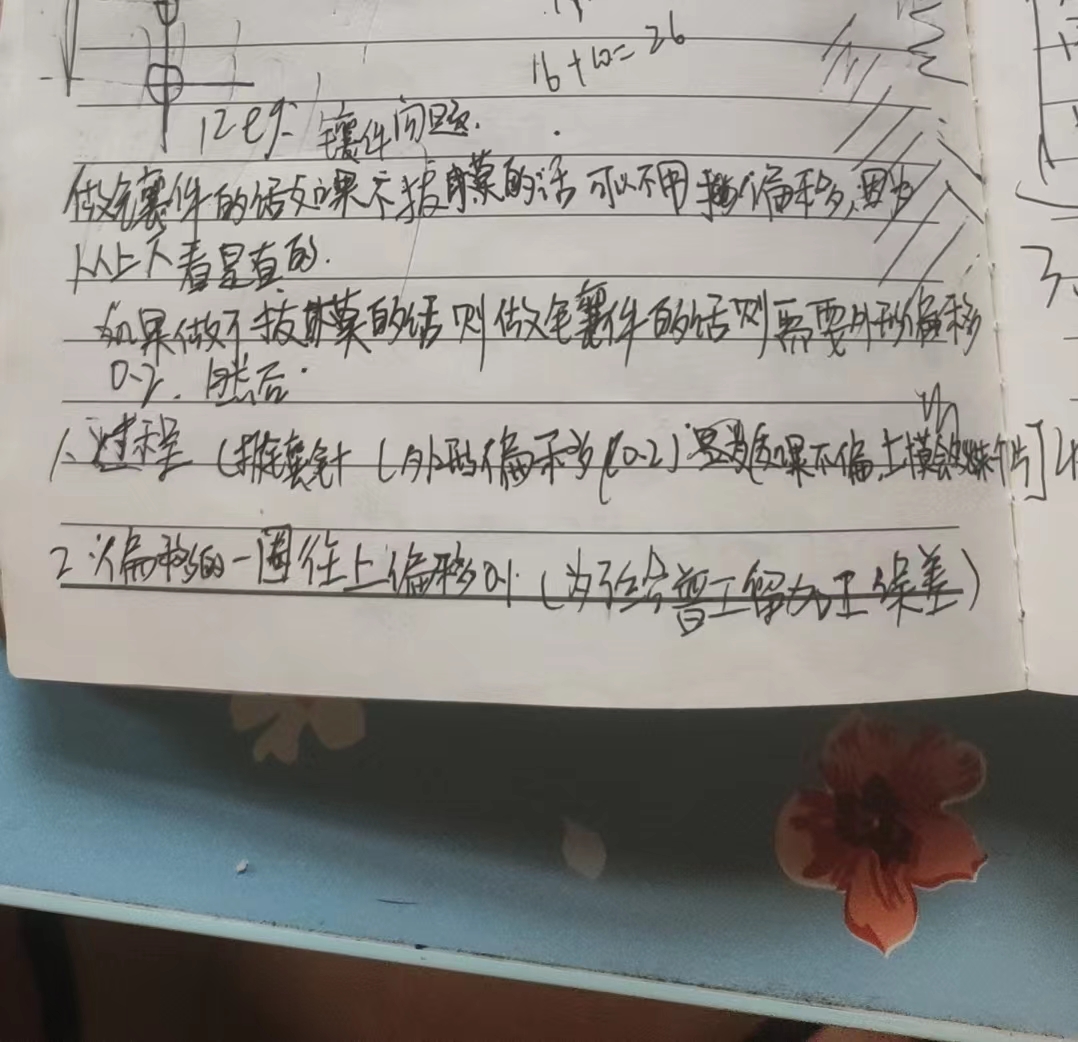 16+10=26
12eg: 镶件问题.
做镶件的话如果不拔模的话可以不用偏移,因为
从上下看是直的.
如果做不拔模的话则做镶件的话则需要外形偏移
0.2. 然后.
1. 过程 (推镶针 (外形偏移(0.2) 因为如果不偏,上模会
2. 偏移的一圈往上偏移0.1 (为了给普工留加工误差)
3.